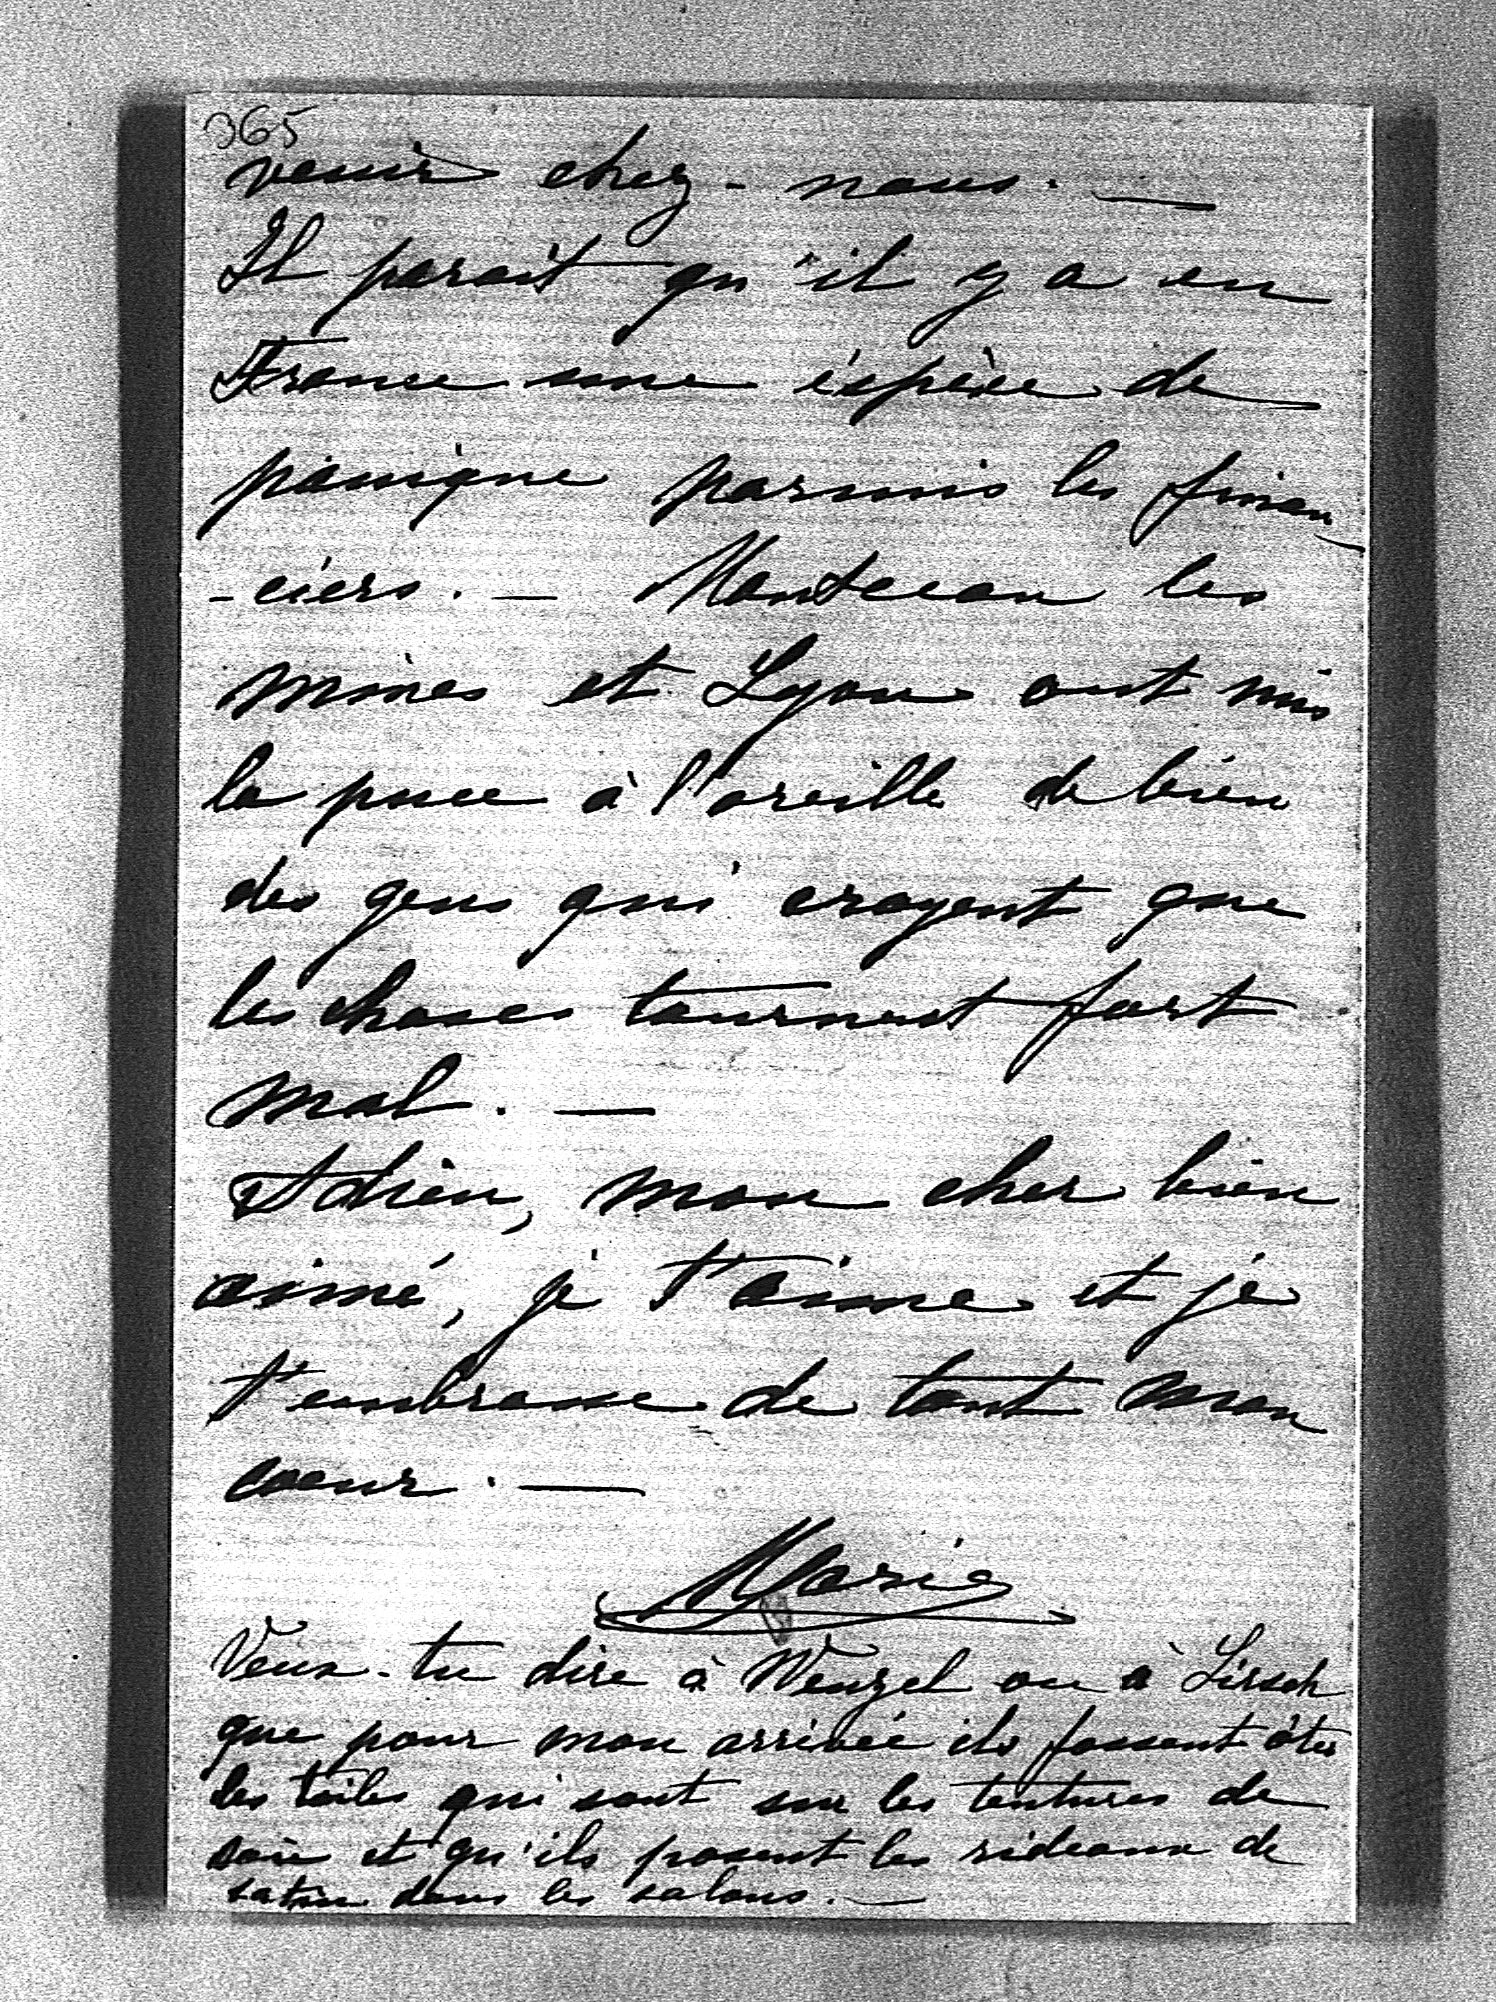 365
venir chez-nous. —
Il parait qu'il y a en
France une éspèce de
panique parmis les finan
-ciers. — Montceau les
mines et Lyon ont mis
la puce à l'oreille de bien
des gens qui croyent que
les choses tournent fort
mal. —
Adieu, mon cher bien
aimé, je t'aime et je
t'embrasse de tout mon
coeur. —
Marie
Veux-tu dire à Wenzel ou à Lirsch
que pour mon arrivée ils fassent ôter
les toiles qui sont sur les tentures de
soie et qu'ils posent les rideaux de
satin dans les salons. —